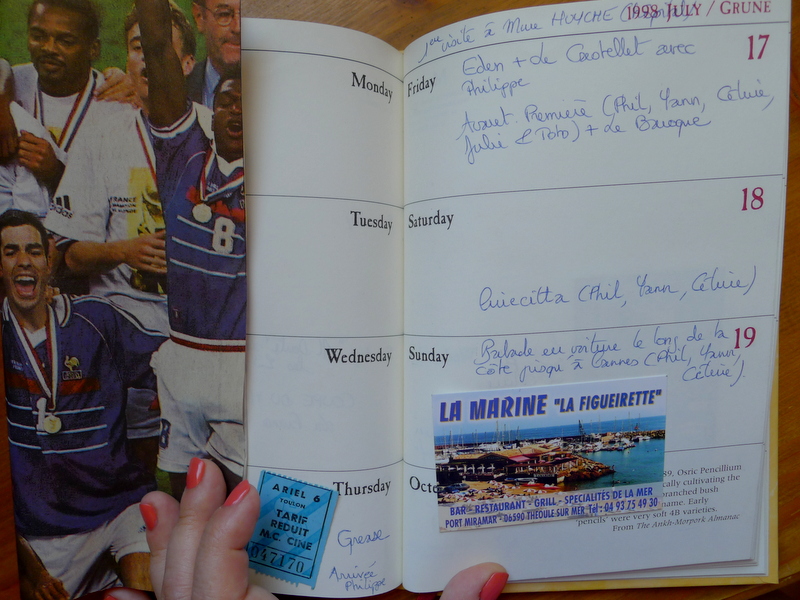 FRANCE
adidas
8
1
8
Monday
Tuesday
Wednesday
Thursday
ARIEL 6
TOULON
TARIF
REDUIT
M.C. CINE
047170
Grease
Arrivée
Philippe
1998 JULY / GRUNE
visite à Mme HUYCHE
Friday
17
Eden + Le Castellet avec
Philippe
Avant-Première (Phil, Yann, Célinie,
Julie & Toto) + Le Baroque
Saturday
18
Cinecitta (Phil, Yann, Célinie)
Sunday
19
Balade en voiture le long de la
côte jusqu'à Cannes (Phil, Yann,
Célinie).
Octe
LA MARINE "LA FIGUEIRETTE"
BAR - RESTAURANT - GRILL - SPECIALITÉS DE LA MER
PORT MIRAMAR - 06590 THEOULE SUR MER Tel : 04 93 75 49 30
89, Osric Pencillium
cally cultivating the
branched bush
name. Early
"pencils" were very soft 4B varieties.
From The Ankh-Morpork Almanac